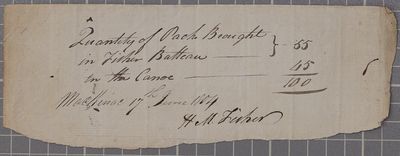 Quantity of Pack Brought
in Fisher Batteau — } - 55
in the Canoe — 45
100
Mackinac 17th June 1804
H. M. Fisher